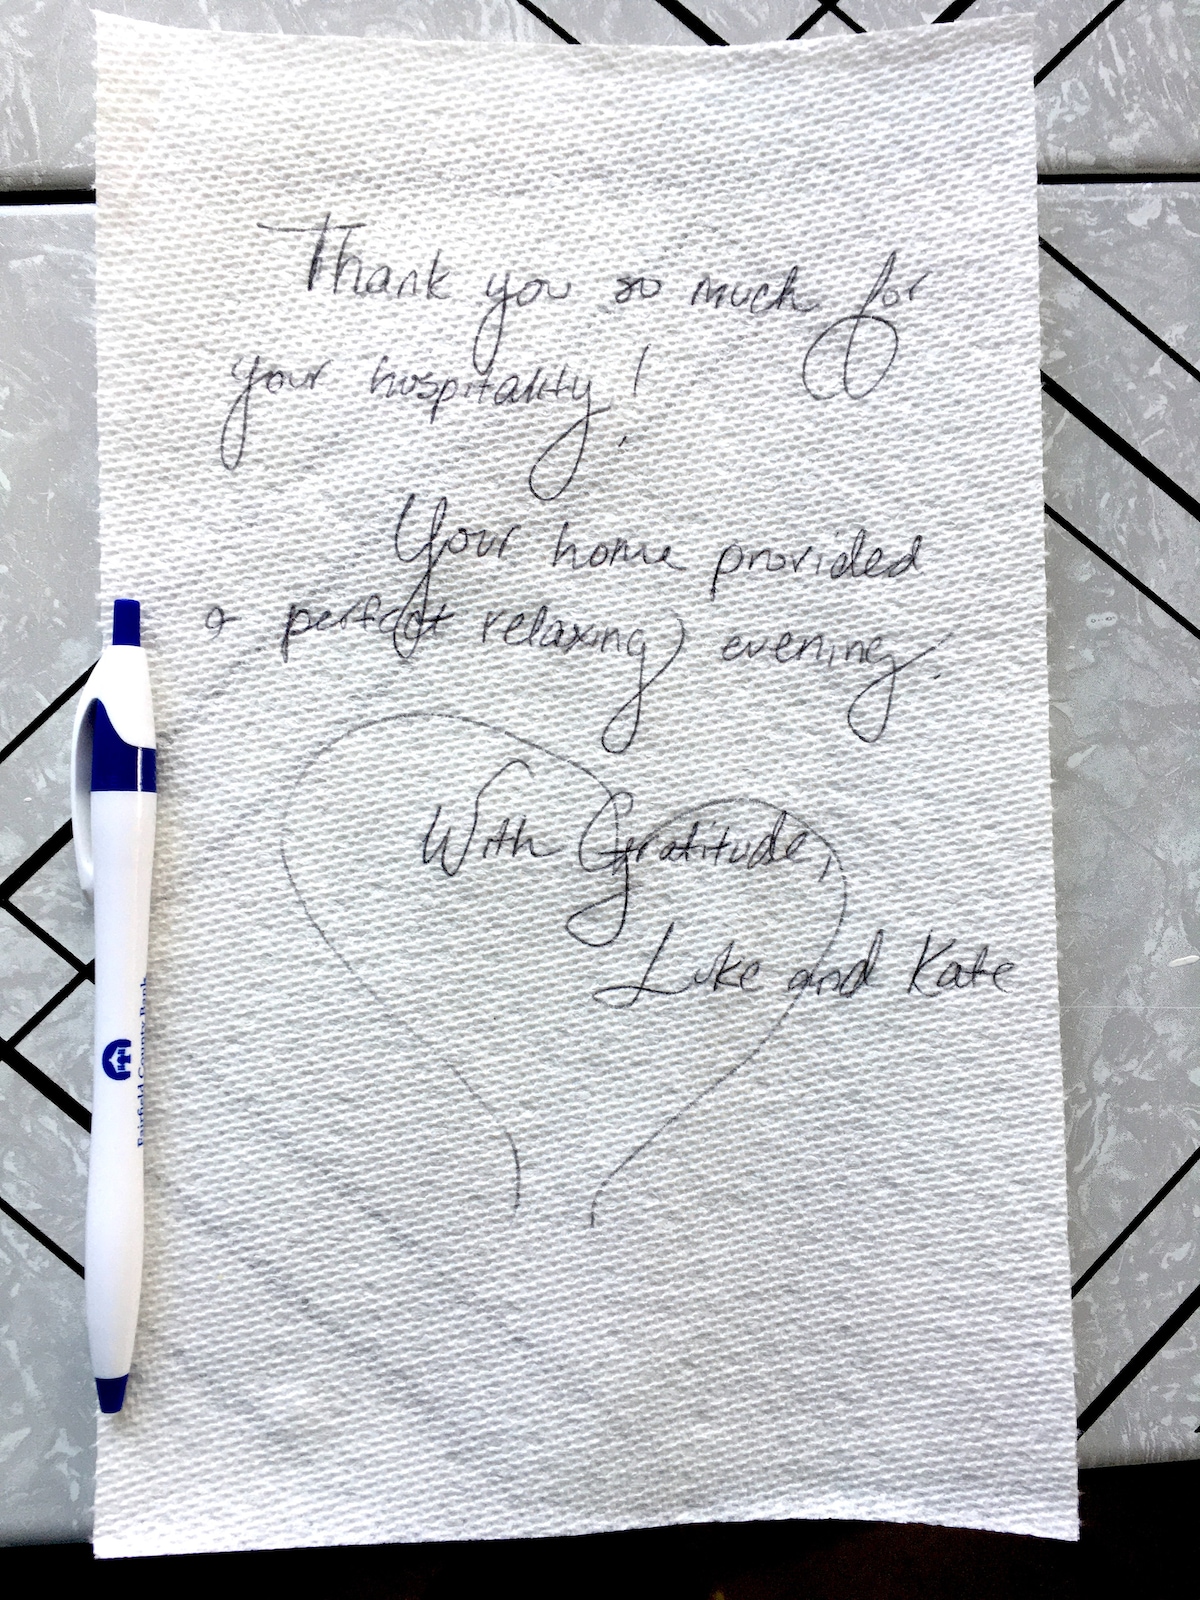 Thank you so much for
your hospitality!
Your home provided
a perfect relaxing evening.
With Gratitude,
Luke and Kate
Fairfield County Bank